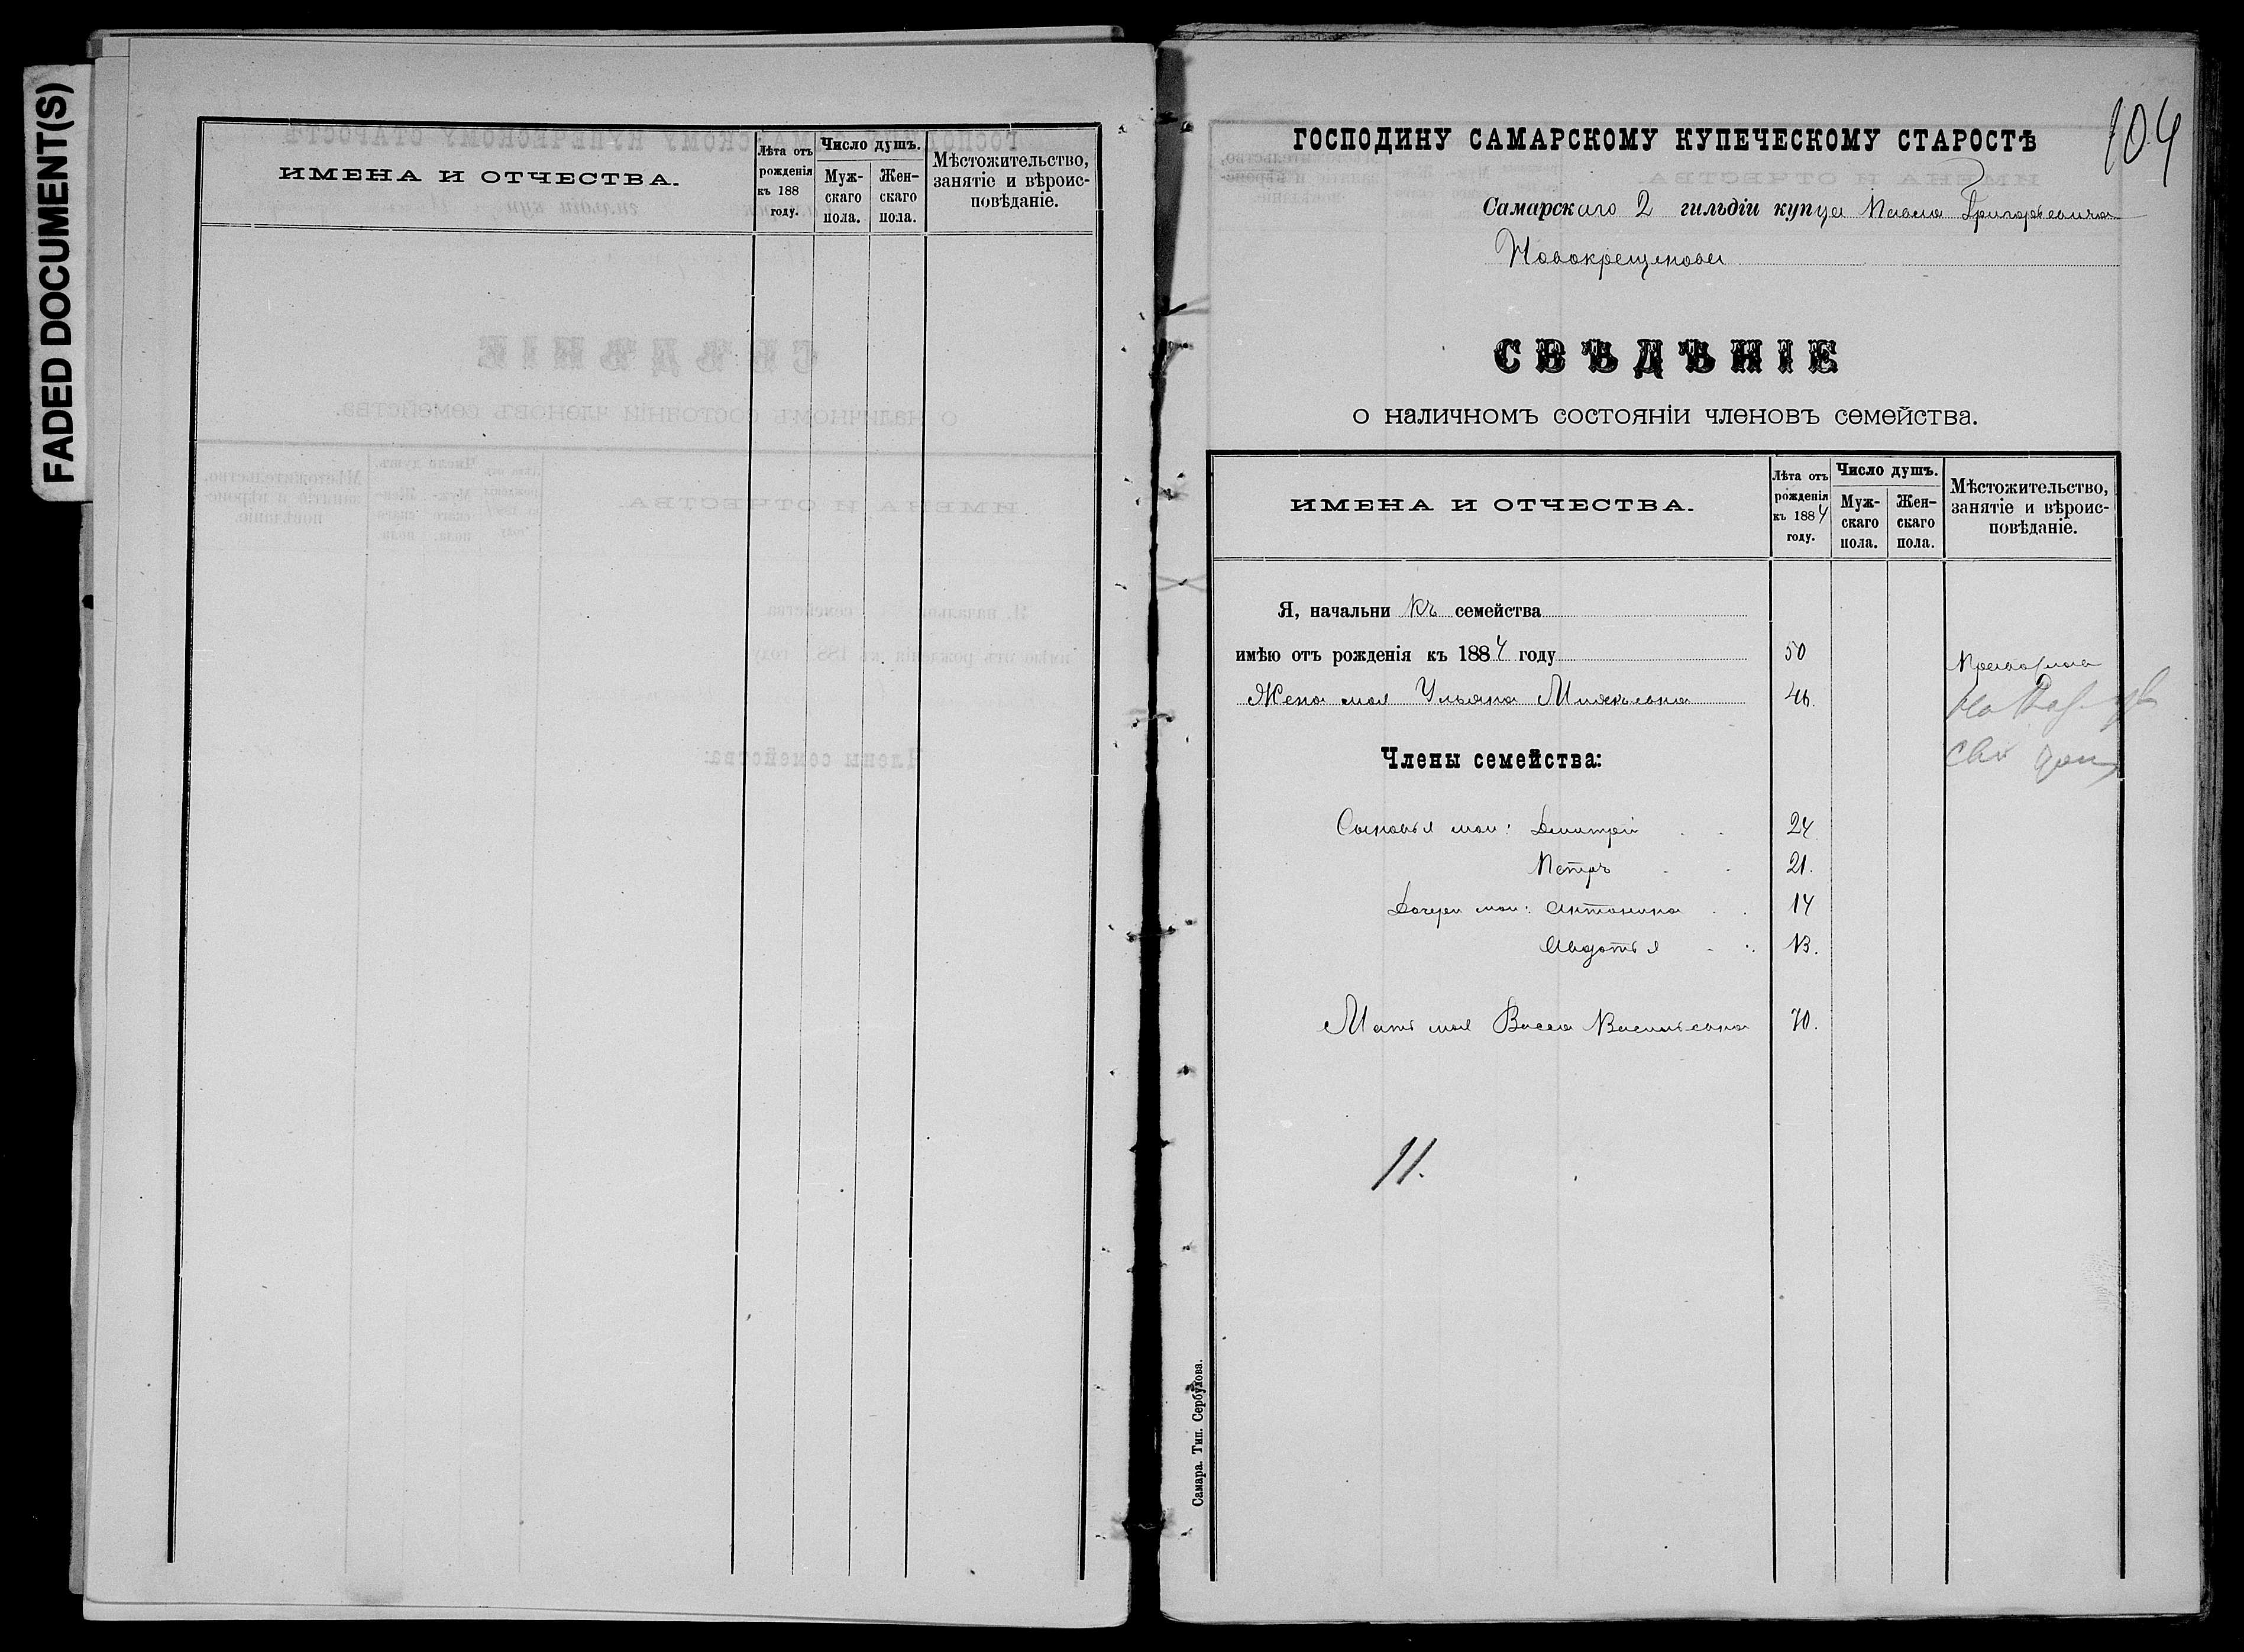 FADED DOCUMENT(S)
ИМЕНА И ОТЧЕСТВА.
Лѣта отъ рожденія къ 188 году.
Число душъ.
Муж-скаго пола.
Жен-скаго пола.
Мѣстожительство, занятіе и вѣроис-повѣданіе.
104
ГОСПОДИНУ САМАРСКОМУ КУПЕЧЕСКОМУ СТАРОСТѢ
Самарскаго 2 гильдіи купца Павла Григорьевича
Новокрещенова
СВѢДѢНІЕ
о наличномъ состояніи членовъ семейства.
ИМЕНА И ОТЧЕСТВА.
Лѣта отъ рожденія къ 1884 году.
Число душъ.
Муж-скаго пола.
Жен-скаго пола.
Мѣстожительство, занятіе и вѣроис-повѣданіе.
Я, начальникъ семейства
имѣю отъ рожденія къ 1884 году 50
Жена моя Ульяна 46.
Члены семейства:
свой домъ
Сыновья мои: Дмитрій 24
Петръ 21.
Дочери мои: Антонина 14
Авдотья 13.
Мать моя Васса Васильевна 70.
11.
Самара. Тип. Сербулова.